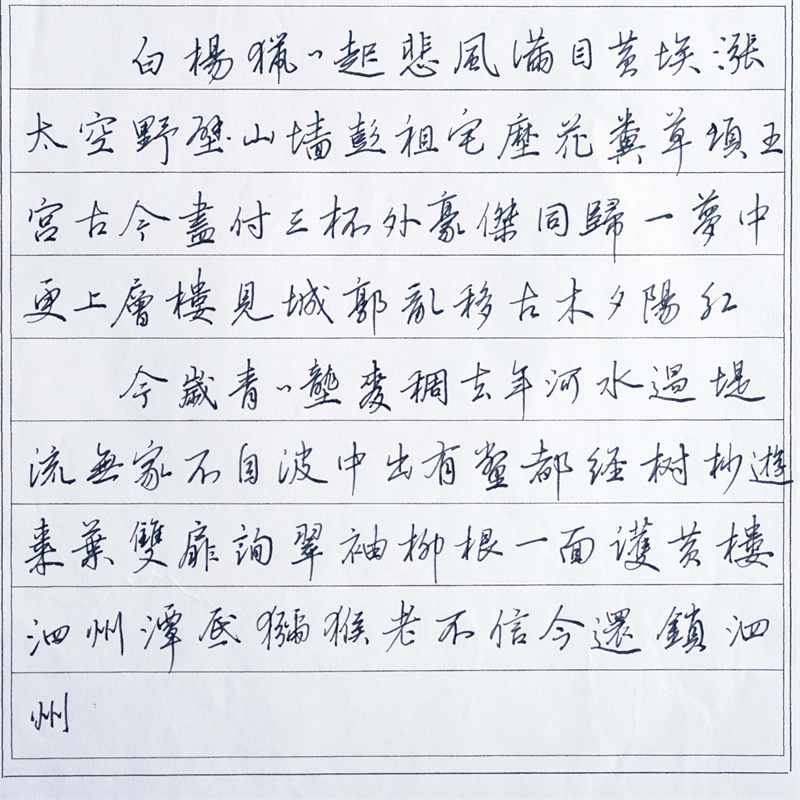 白楊獵〻起悲風滿目黃埃漲
太空野壁山墻彭祖宅壓花糞草項王
宮古今盡付三杯外豪傑同歸一夢中
更上層樓見城郭亂移古木夕陽紅
今歲青〻壟麥稠去年河水過堤
流無家不自波中出有鱉都經树杪遊
棗葉雙扉詢翠袖柳根一面護黃樓
泗州潭底獼猴老不信今還鎖泗
州